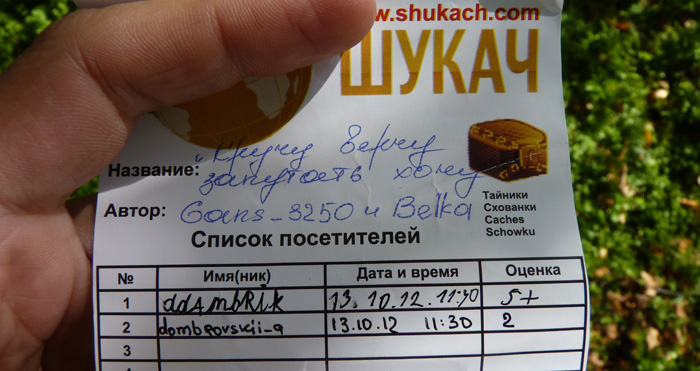 www.shukach.com
ШУКАЧ
Название: "Кручу верчу
запутать хочу
Тайники
Схованки
Caches
Schowku
Автор: Gans_3250 и Belka
Список посетителей
№ Имя(ник) Дата и время Оценка
1 ddambRik 13.10.12. 11:30 5+
2 dombrovskii-a 13.10.12 11:30 2
3